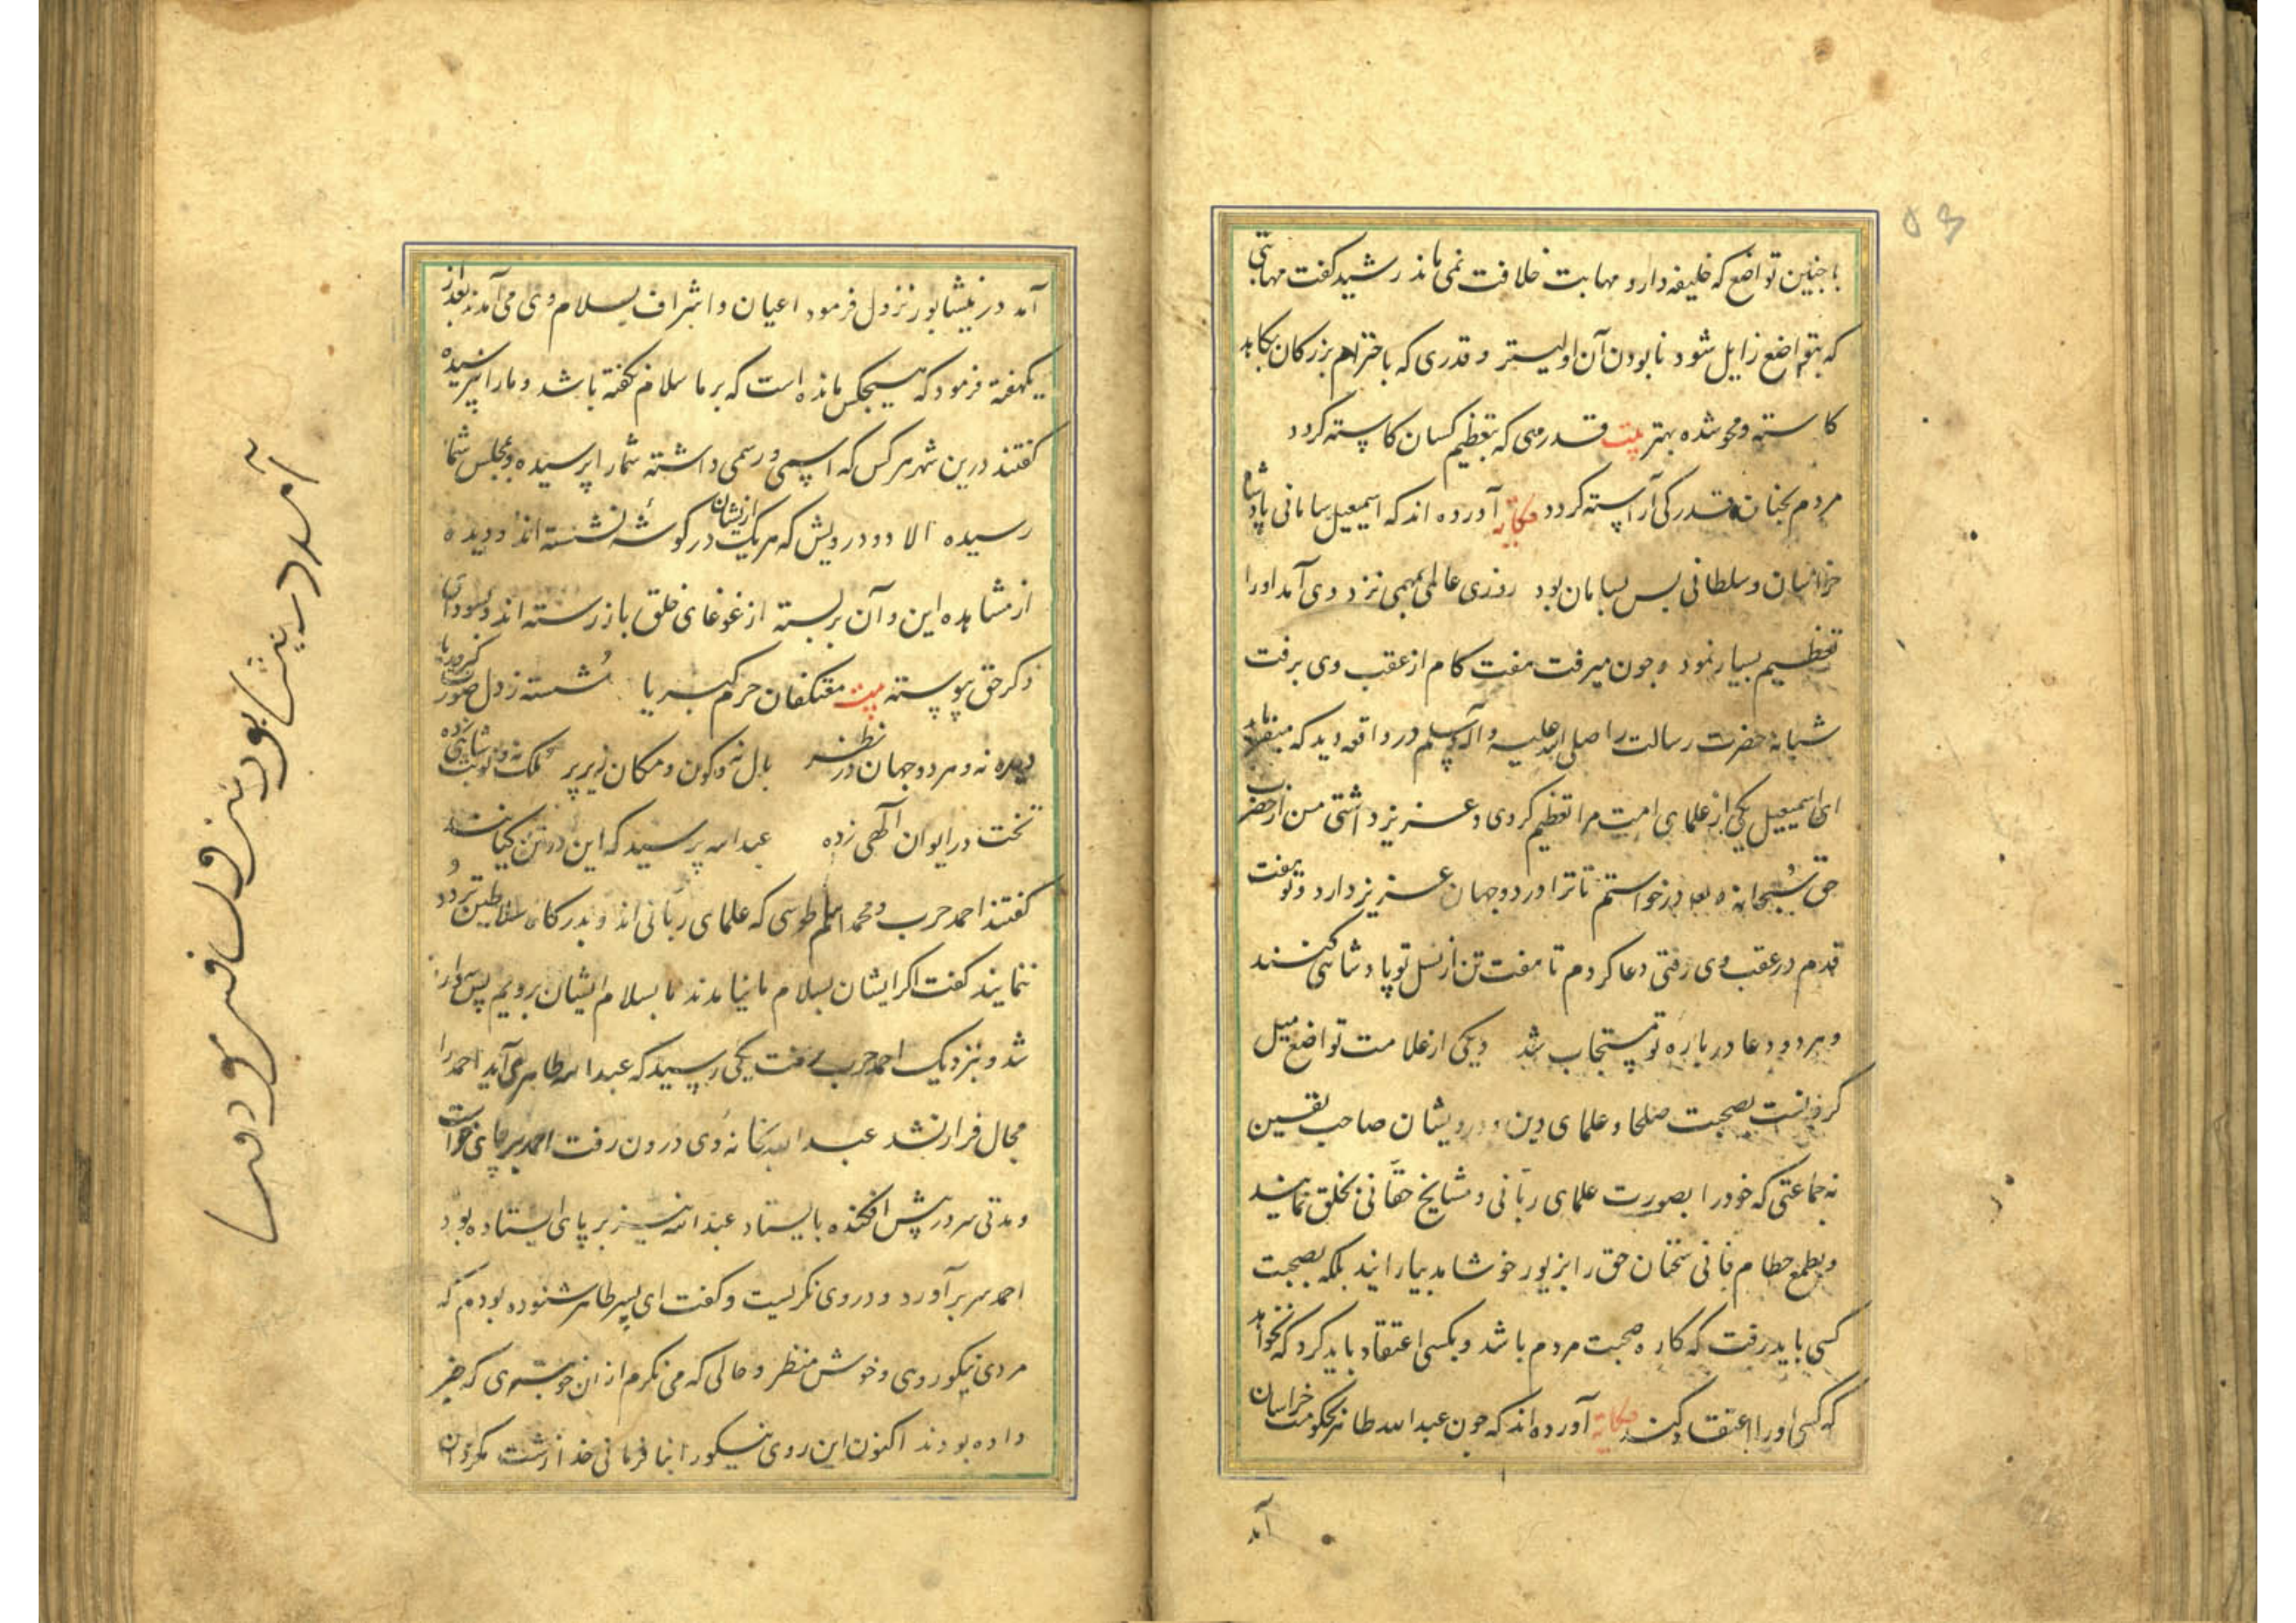 ۵۳
با چنین تواضع که خلیفه دارد مهابت خلافت نمی ماند رشید گفت مهابتی
که بتواضع زایل شود نابودن آن اولیتر و قدری که باحترام بزرکان بکاهد
کاسته و محو شده بهتر بیت قدرمی که بتعظیم کسان کاسته کردد
مردم بچنان قدر کی آراسته کردد حکایه آورده اند که اسمعیل سامانی پادشاه
خراسان و سلطانی بس بسامان بود روزی عالمی بمهمی نزد وی آمد او را
تعظیم بسیار نمود و چون میرفت هفت کام از عقب وی برفت
شبانه حضرت رسالت را صلی الله علیه و آله وسلم در واقعه دید که میفرماید
ای اسمعیل یکی از علمای امت مرا تعظیم کردی و عزیز داشتی من از حضرت
حق سبحانه و تعالی درخواستم تا ترا در دو جهان عزیز دارد و تو هفت
قدم در عقب وی رفتی دعا کردم تا هفت تن از نسل تو پادشاهی کنند
و هر دو دعا درباره تو مستجاب شد دیکر از علامت تواضع میل
کردنست بصحبت صلحا و علمای دین و درویشان صاحب یقین
نه جماعتی که خود را بصورت علمای ربانی و مشایخ حقانی بخلق نمایند
و بطمع حطام فانی سخنان حق را بزیور خوشامد بیارایند بلکه بصحبت
کسی باید رفت که کاره صحبت مردم باشد و بکسی اعتقاد باید کرد که نخواهد
که کسی او را اعتقاد کند حکایه آورده اند که چون عبدالله طاهر بحکومت خراسان
آمد
آمد در نیشابور نزول فرمود اعیان و اشراف بسلام وی می آمدند بعد از
یکهفته فرمود که هیچکس مانده است که بر ما سلام نکفته باشد و ما را نپرسیده
کفتند درین شهر هر کس که اسمی و رسمی داشته شما را پرسیده و بمجلس شما
رسیده الا دو درویش که هر یک ازیشان در کوشه نشسته اند و دیده
از مشاهده این و آن بربسته از غوغای خلق باز رسته اند و بسودای
ذکر حق پیوسته بیت معتکفان حرم کبریا شسته ز دل صورت کبر و ریا
دیده نه و هر دو جهان در نظر بال نه و کون و مکان زیر پر ملک نه و نوبت شاهی زده
تخت در ایوان الهی زده عبدالله پرسید که این دو تن کیانند
کفتند احمد حرب و محمد اسلم طوسی که علمای ربانی اند و بدرکاه سلاطین تردد
ننمایند کفت اکر ایشان بسلام ما نیامدند ما بسلام ایشان رویم پس سوار
شد و بنزدیک احمد حرب رفت یکی رسید که عبدالله طاهر می آید احمد را
مجال فرار نشد عبدالله بخانه وی درون رفت احمد بر پای خواست
و مدتی سر در پیش افکنده بایستاد عبدالله نیز بر پای ایستاده بود
احمد سر برآورد و در وی نکریست و کفت ای پسر طاهر شنوده بودم که
مردی نیکو روی و خوش منظر و حالی که می نکرم از ان خوبتری که خبر
داده بودند اکنون این روی نیکو را بنافرمانی خدا زشت مکردان
آمد در نیشابور نزول فرمود